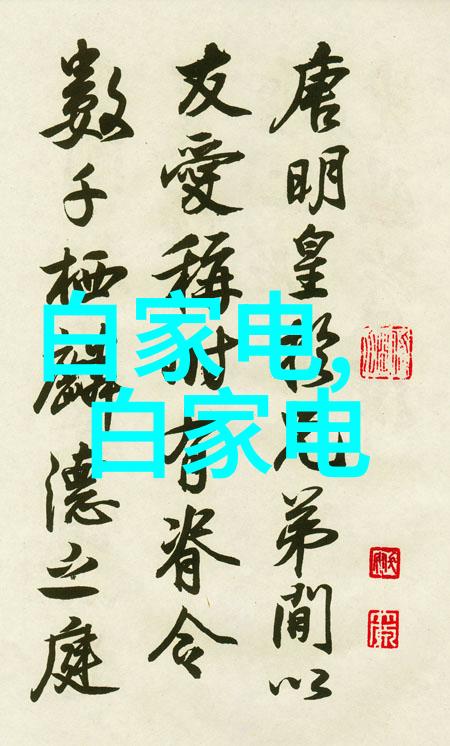 白家电,
白家电
唐明皇於弟間以
友愛稱時有脊令
數千栖麟德之庭